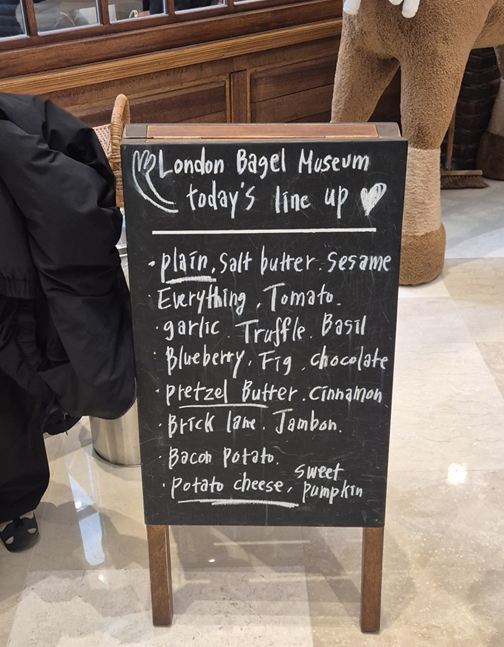 London Bagel Museum
today's line up
· plain, salt butter. sesame
· Everything, Tomato.
· garlic. Truffle. Basil
· Blueberry, Fig, chocolate
· pretzel Butter. cinnamon
· Brick lane. Jambon.
· Bacon potato.
· Potato cheese, sweet pumpkin